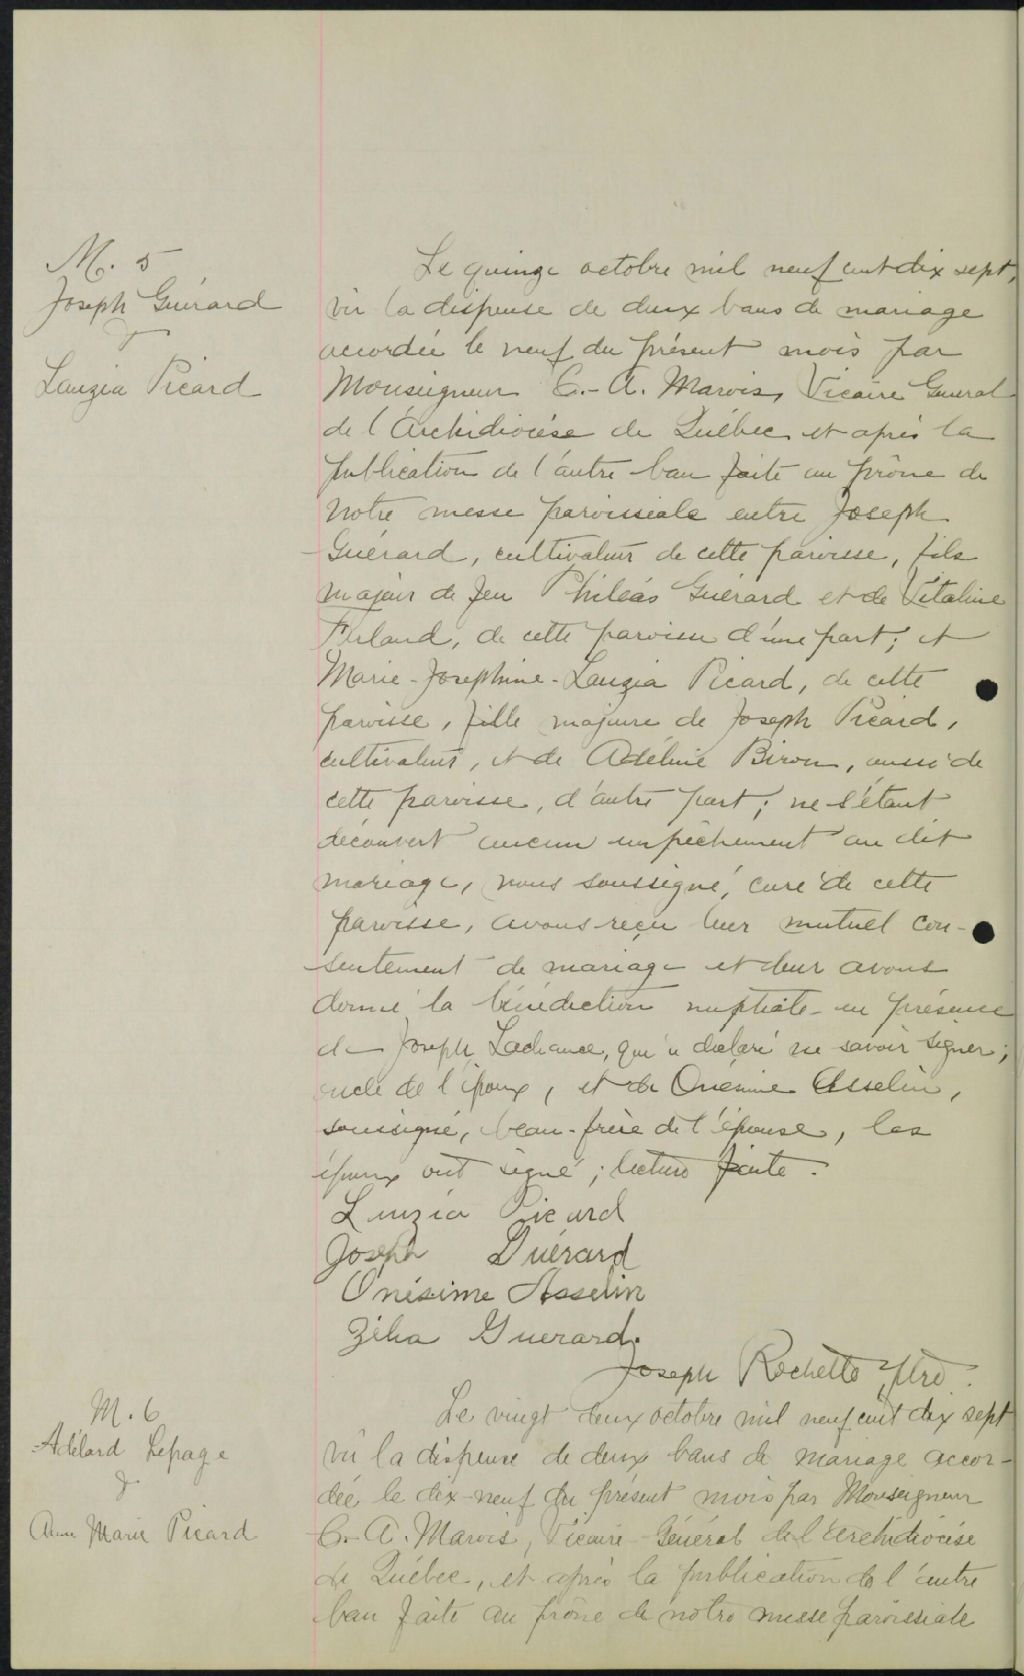 M. 5
Joseph Guérard
&
Lauzia Picard
Le quinze octobre mil neuf cent dix sept,
vu la dispense de deux bans de mariage
accordée le neuf du présent mois par
Monseigneur C.-A. Marois, Vicaire Général
de l'Archidiocèse de Québec et après la
publication de l'autre ban faite au prône de
notre messe paroissiale entre Joseph
Guérard, cultivateur de cette paroisse, fils
majeur de feu Philéas Guérard et de Vitaline
Ferland, de cette paroisse d'une part; et
Marie-Joséphine-Lauzia Picard, de cette
paroisse, fille majeure de Joseph Picard,
cultivateur, et de Adéline Biron, aussi de
cette paroisse, d'autre part; ne s'étant
découvert aucun empêchement au dit
mariage, nous soussigné, curé de cette
paroisse, avons reçu leur mutuel con-
sentement de mariage et leur avons
donné la bénédiction nuptiale en présence
de Joseph Lachance, qui a déclaré ne savoir signer;
oncle de l'époux, et de Onésime Asselin,
soussigné, beau-frère de l'épouse, les
époux ont signé; lecture faite.
Luuzia Picard
Joseph Guérard
Onésime Asselin
Zélia Guerard.
Joseph Rochette Ptre.
M. 6
Adélard Lepage
&
Anna Marie Picard
Le vingt deux octobre mil neuf cent dix sept
vu la dispense de deux bans de mariage accor-
dée le dix-neuf du présent mois par Monseigneur
C.-A. Marois, Vicaire-Général de l'archidiocèse
de Québec, et après la publication de l'autre
ban faite au prône de notre messe paroissiale